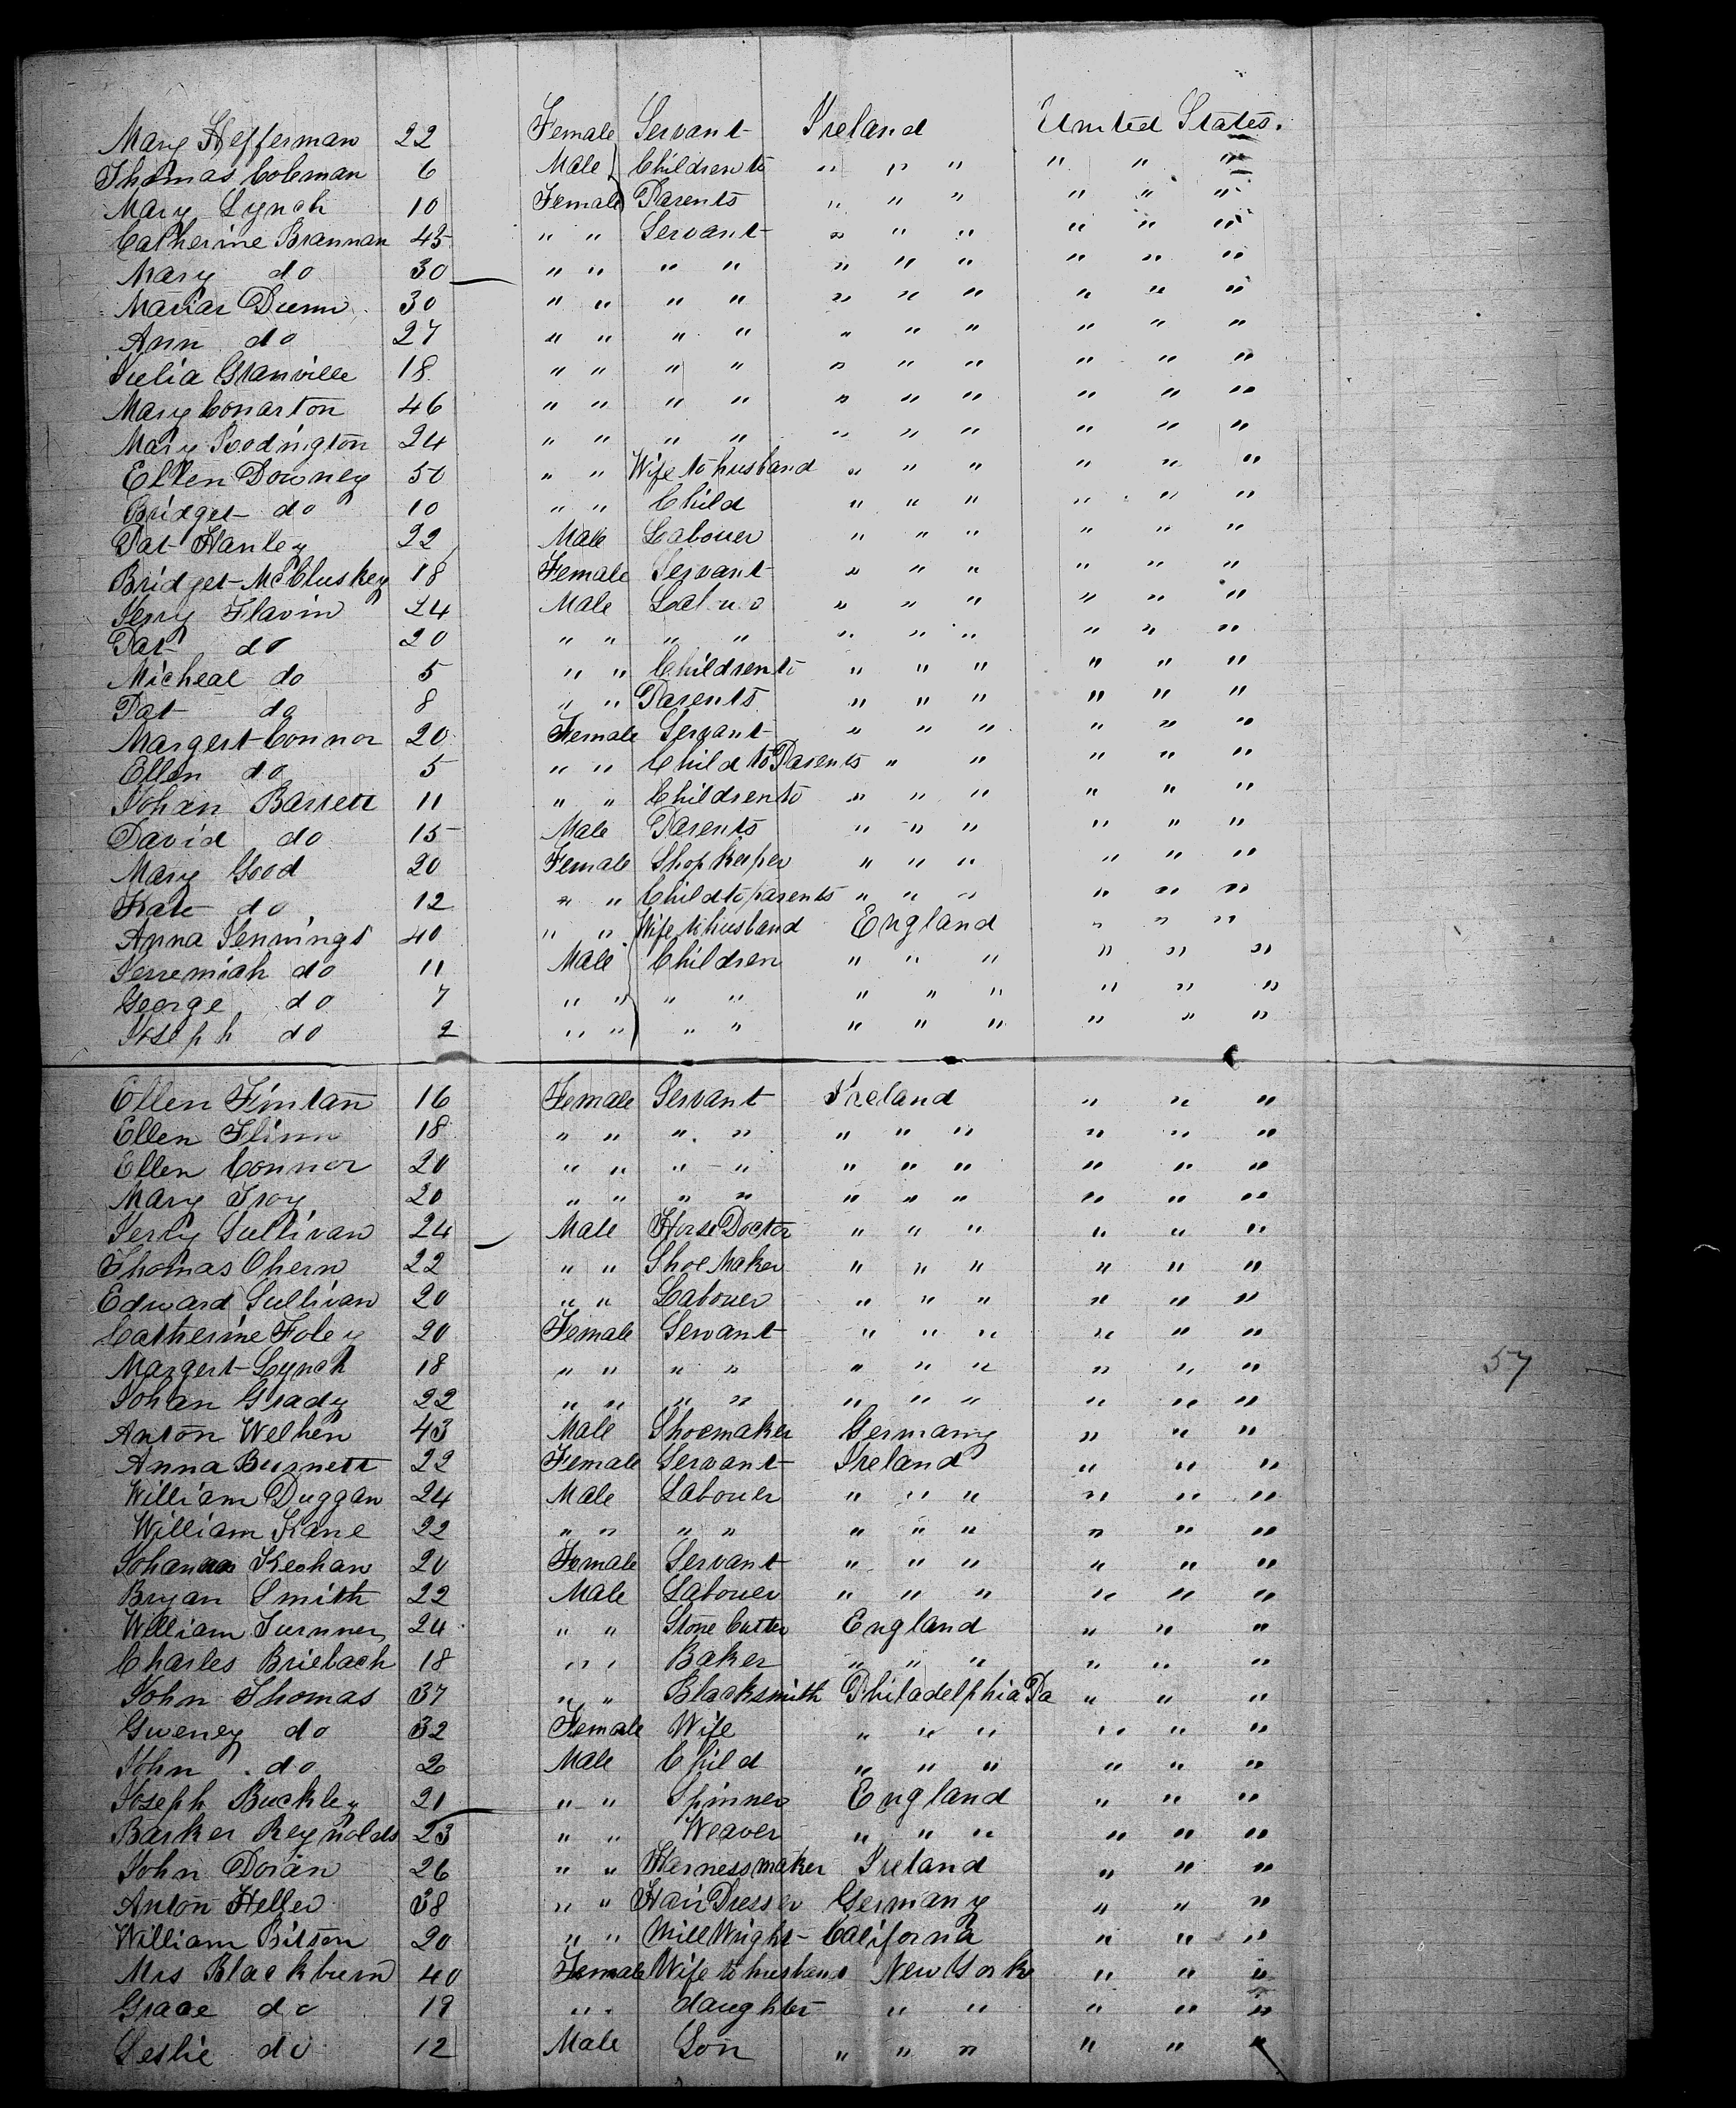 Mary Hefferman 22 Female Servant Ireland United States.
Thomas Coleman 6 Male Children to " " " " " "
Mary Lynch 10 Female Parents " " " " " "
Catherine Brannan 45 " " Servant " " " " " "
Mary do 30 " " " " " " " " " "
Mariar Dunn 30 " " " " " " " " " "
Ann do 27 " " " " " " " " " "
Julia Granville 18 " " " " " " " " " "
Mary Conarton 46 " " " " " " " " " "
Mary Bodington 24 " " " " " " " " " "
Ellen Downey 50 " " Wife to husband " " " " " "
Bridget do 10 " " Child " " " " " "
Pat Hanley 22 Male Labouer " " " " " "
Bridget McCluskey 18 Female Servant " " " " " "
Jerry Flavin 24 Male " " " " " "
Pat do 20 " " " " " " " " " "
Micheal do 5 " " Children to " " " " " "
Pat do 8 " " Parents " " " " " "
Margert Connor 20 Female Servant " " " " " "
Ellen do 5 " " Child to Parents " " " " "
Johan Barrett 11 " " Children to " " " " " "
David do 15 Male Parents " " " " " "
Mary Good 20 Female Shop keeper " " " " " "
Kate do 12 " " Child to parents " " " " " "
Anna Jennings 40 " " Wife to husband England " " "
Jerremiah do 11 Male Children " " " " " "
George do 7 " " " " " " " " " "
Joseph do 2 " " " " " " " " " "
Ellen Fintan 16 Female Servant Ireland " " "
Ellen Flinn 18 " " " " " " " " " "
Ellen Connor 20 " " " " " " " " " "
Mary Troy 20 " " " " " " " " " "
Jerry Sullivan 24 Male Horse Doctor " " " " " "
Thomas Ohern 22 " " Shoe Maker " " " " " "
Edward Sullivan 20 " " Labouer " " " " " "
Catherine Foley 20 Female Servant " " " " " "
Margert Lynch 18 " " " " " " " " " "
Johan Grady 22 " " " " " " " " " "
57
Anton Welhen 43 Male Shoemaker Germany " " "
Anna Burnett 22 Female Servant Ireland " " "
William Duggan 24 Male Labouer " " " " " "
William Kane 22 " " " " " " " " " "
Johanna Keohan 20 Female Servant " " " " " "
Bryan Smith 22 Male Labouer " " " " " "
William Turnner 24 " " Stone Cutter England " " "
Charles Briebach 18 " " Baker " " " " " "
John Thomas 37 " " Blacksmith Philadelphia Pa " " "
Gweney do 32 Female Wife " " " " " "
John do 2 Male Child " " " " " "
Joseph Buckley 21 " " Spinner England " " "
Barker Reynolds 23 " " Weaver " " " " " "
John Doran 26 " " Harness maker Ireland " " "
Anton Heller 38 " " Hair Dresser Germany " " "
William Bitson 20 " " Mill Wright California " " "
Mrs Blackburn 40 Female Wife to husband New York " " "
Grace do " " daughter " " " " "
Leslie do 12 Male Son " " " " " "